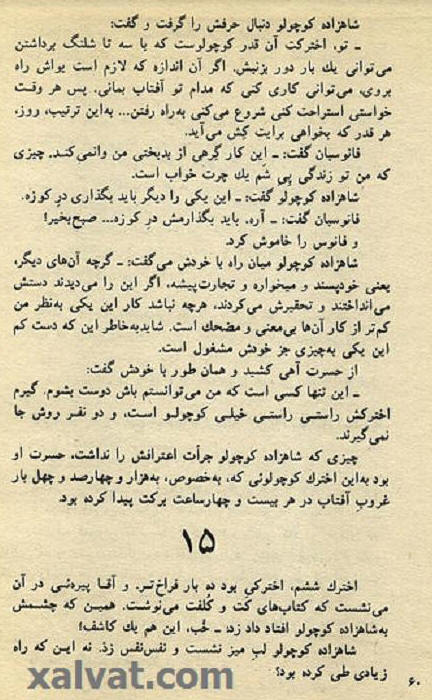 شاهزاده کوچولو دنبال حرفش را گرفت و گفت:
ـ تو، اخترکت آن قدر کوچولوست که با سه تا شلنگ برداشتن
می‌توانی یك بار دور بزنیش. اگر آن اندازه که لازم است یواش راه
بروی، می‌توانی کاری کنی که مدام تو آفتاب بمانی. پس هر وقت
خواستی استراحت کنی شروع می‌کنی به‌راه رفتن... به‌این ترتیب، روز،
هر قدر که بخواهی برایت کِش می‌آید.
فانوسبان گفت: ـ این کار گِرهی از بدبختی من وانمی‌کند. چیزی
که من تو زندگی پِی شَم یك چرت خواب است.
شاهزاده کوچولو گفت: ـ این یکی را دیگر باید بگذاری درِ کوزه.
فانوسبان گفت: ـ آره. باید بگذارمش درِ کوزه... صبح‌بخیر!
و فانوس را خاموش کرد.
شاهزاده کوچولو میان راه با خودش می‌گفت: ـ گرچه آن‌های دیگر،
یعنی خودپسند و میخواره و تجارت‌پیشه، اگر این را می‌دیدند دستش
می‌انداختند و تحقیرش می‌کردند، هرچه نباشد کار این یکی به‌نظر من
کم‌تر از کار آن‌ها بی‌معنی و مضحك است. شاید‌به‌خاطر این که دست کم
این یکی به‌چیزی جز خودش مشغول است.
از حسرت آهی کشید و همان طور با خودش گفت:
ـ این تنها کسی است که من می‌توانستم باش دوست بشوم. گیرم
اخترکش راستـی راستـی خیلـی کوچولـو اسـت، و دو نفـر روش جا
نمی‌گیرند.
چیزی که شاهزاده کوچولو جرأت اعترافش را نداشت، حسرت او
بود به‌این اخترك کوچولوئی که، به‌خصوص، به‌هزار و چهارصد و چهل بار
غروبِ آفتاب در هر بیست و چهارساعت برکت پیدا کرده بود.
۱۵
اخترك ششم، اخترکی بود ده بار فراخ‌تـر. و آقـا پیره‌ئـی در آن
می‌نشست که کتاب‌های کَت و کُلفت می‌نوشـت. همیـن که چشـمش
به‌شاهزاده کوچولو افتاد داد زد: ـ خُب، این هم یك کاشف!
شاهزاده کوچولو لبِ میز نشست و نفس‌نفس زد. نه ایـن که راه
زیادی طی کرده بود؟
۶۰
xalvat.com